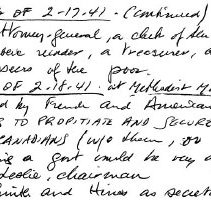 OF 2-17-41. (continued)
ttorney-general, a clerk of the
reader, a treasurer, a
seers of the poor.
OF 2.18.41. at Methodist
d by French and American
G TO PROPITIATE AND SECURE
CANADIANS (w/o them, no
a govt would be very
Leslie, chairman
Smith and Hines as secret